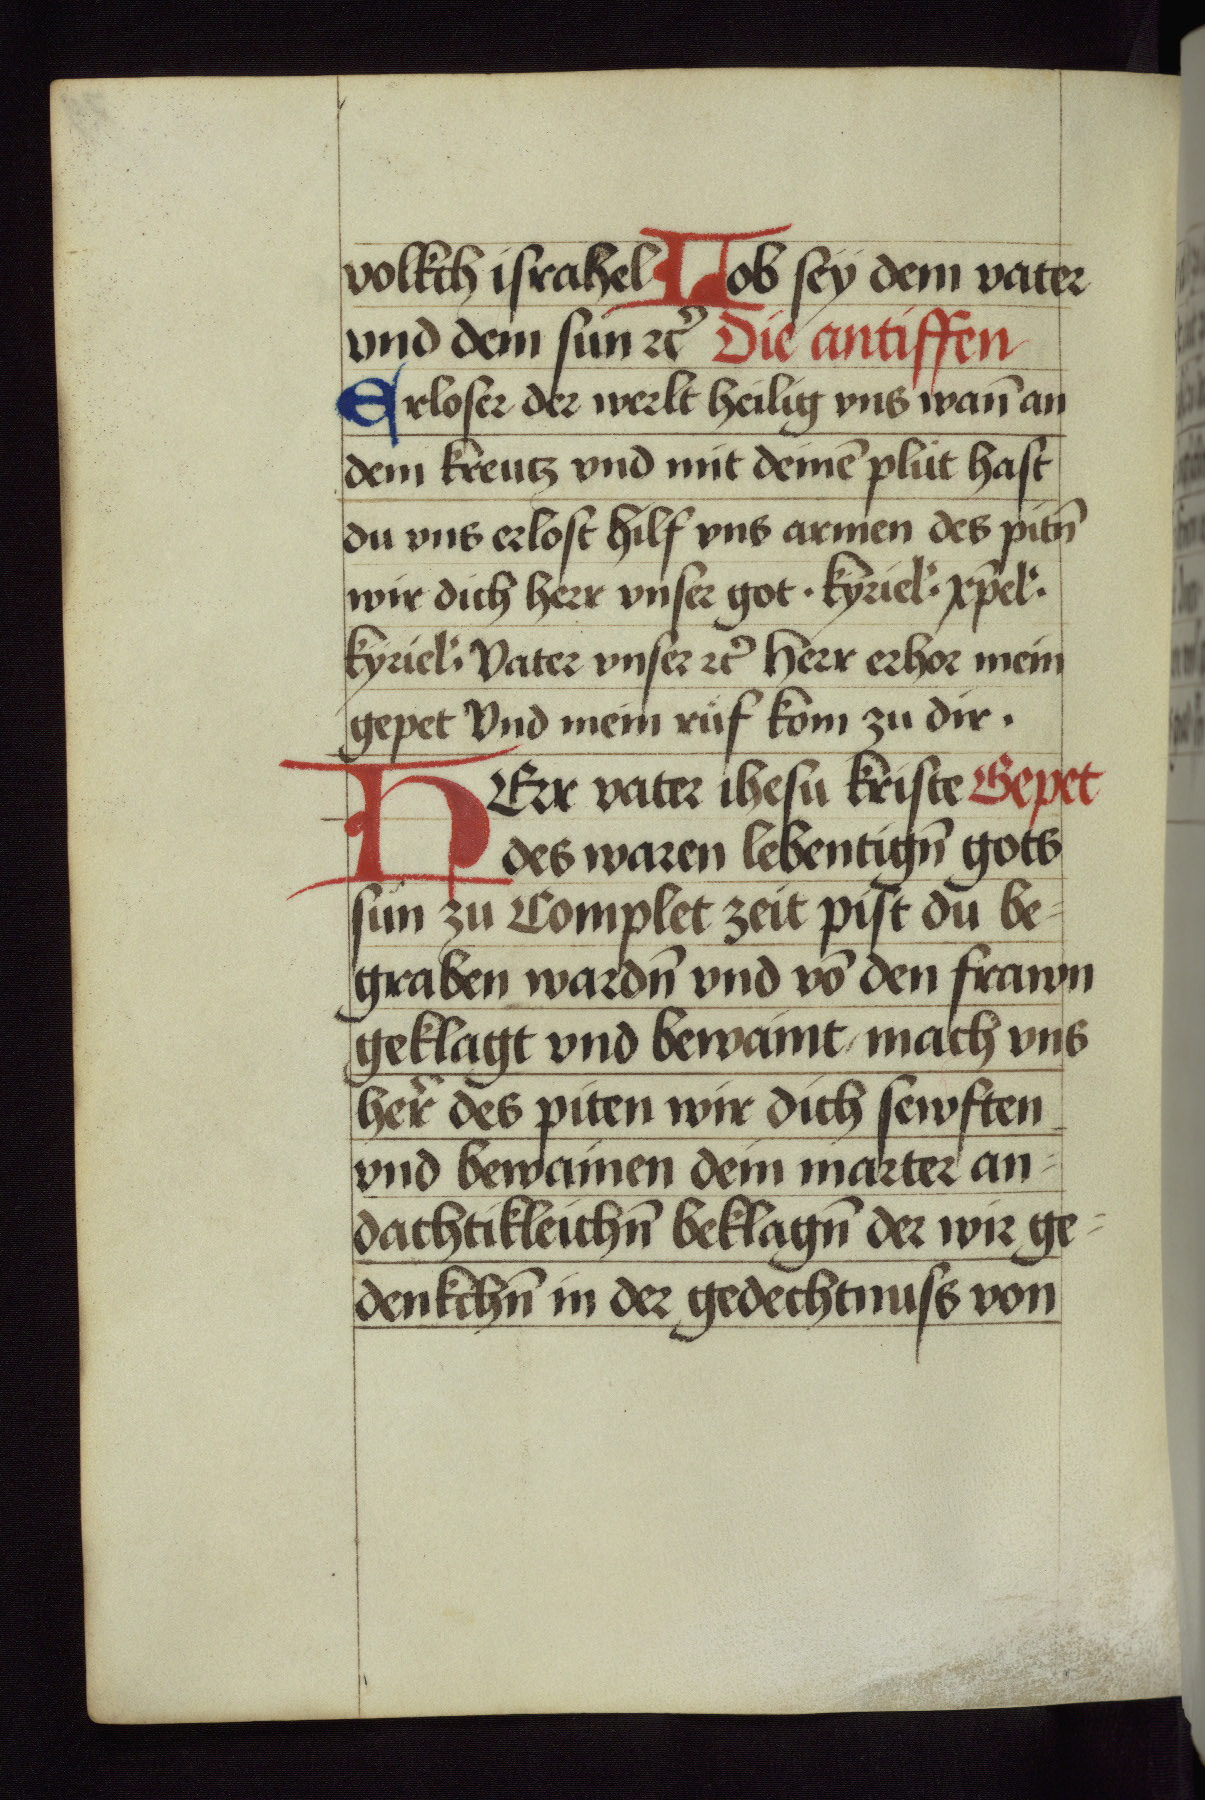 volkch israhel Lob seÿ dem vater
vnd dem sun ꝛc̃ Die antiffen
Erloser der werlt heilig vns wañ an
dem kreutz vnd mit deinē plůt hast
du vns erlost hilf vns armen des pitñ
wir dich herr vnser got · kyriel: xp̄el:
kyriel: Vater vnser ꝛc̃ Herr erhor mein
gepet Vnd mein růf kom zu dir ·
HErr vater ihesu kriste Gepet
des waren lebentigñ gots
sun zu Complet zeit pist du be=
graben wardñ vnd vō den frawn
geklagt vnd bewaint mach vns
her̃ des piten wir dich sewften
vnd bewainen dein marter an=
dachtikleichñ beklagñ der wir ge=
denkchñ in der gedechtnuss von